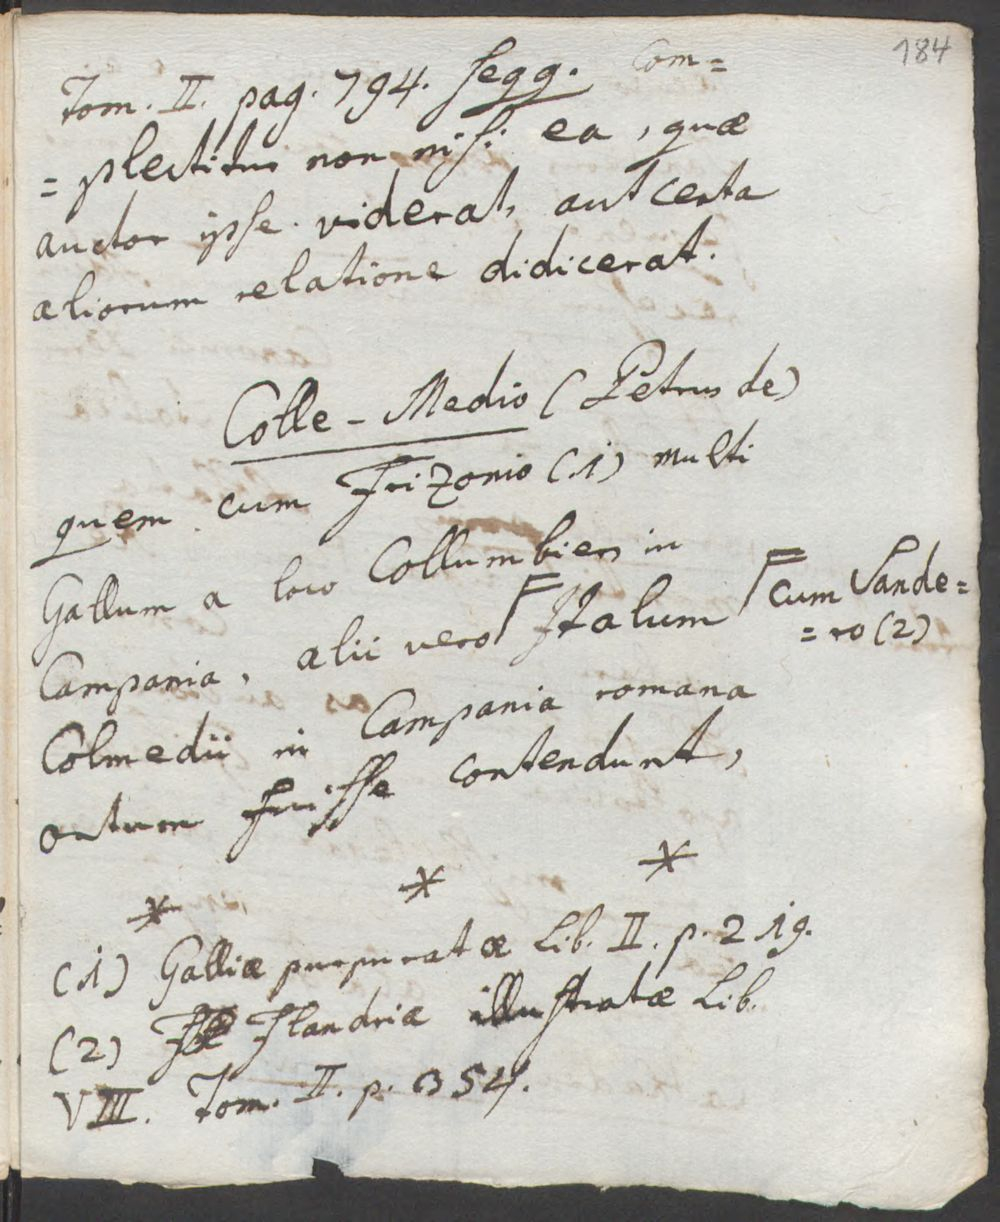 184
Tom. II. pag. 794. seqq. Com=
= plectitur non nisi ea, quæ
auctor ipse viderat, aut certa
aliorum relatione didicerat.
Colle-Medio (Petrus de)
quem cum Frizonio (1) multi
Gallum a loco Collumbien in
Campania, alii vero Italum
cum Sande=
= ro (2)
Colmedii in Campania romana
ortum fuisse contendunt,
* * *
(1) Galliæ purpuratæ Lib. II. p. 219.
(2) Flandriæ illustratæ Lib.
VIII. Tom. II. p. 354.